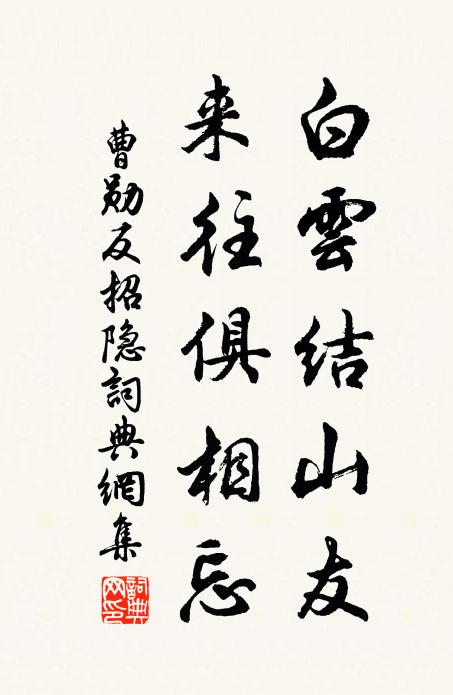 白雲結山友
来往俱相忘
曹勛反招隐詞典網集
詞典
网印